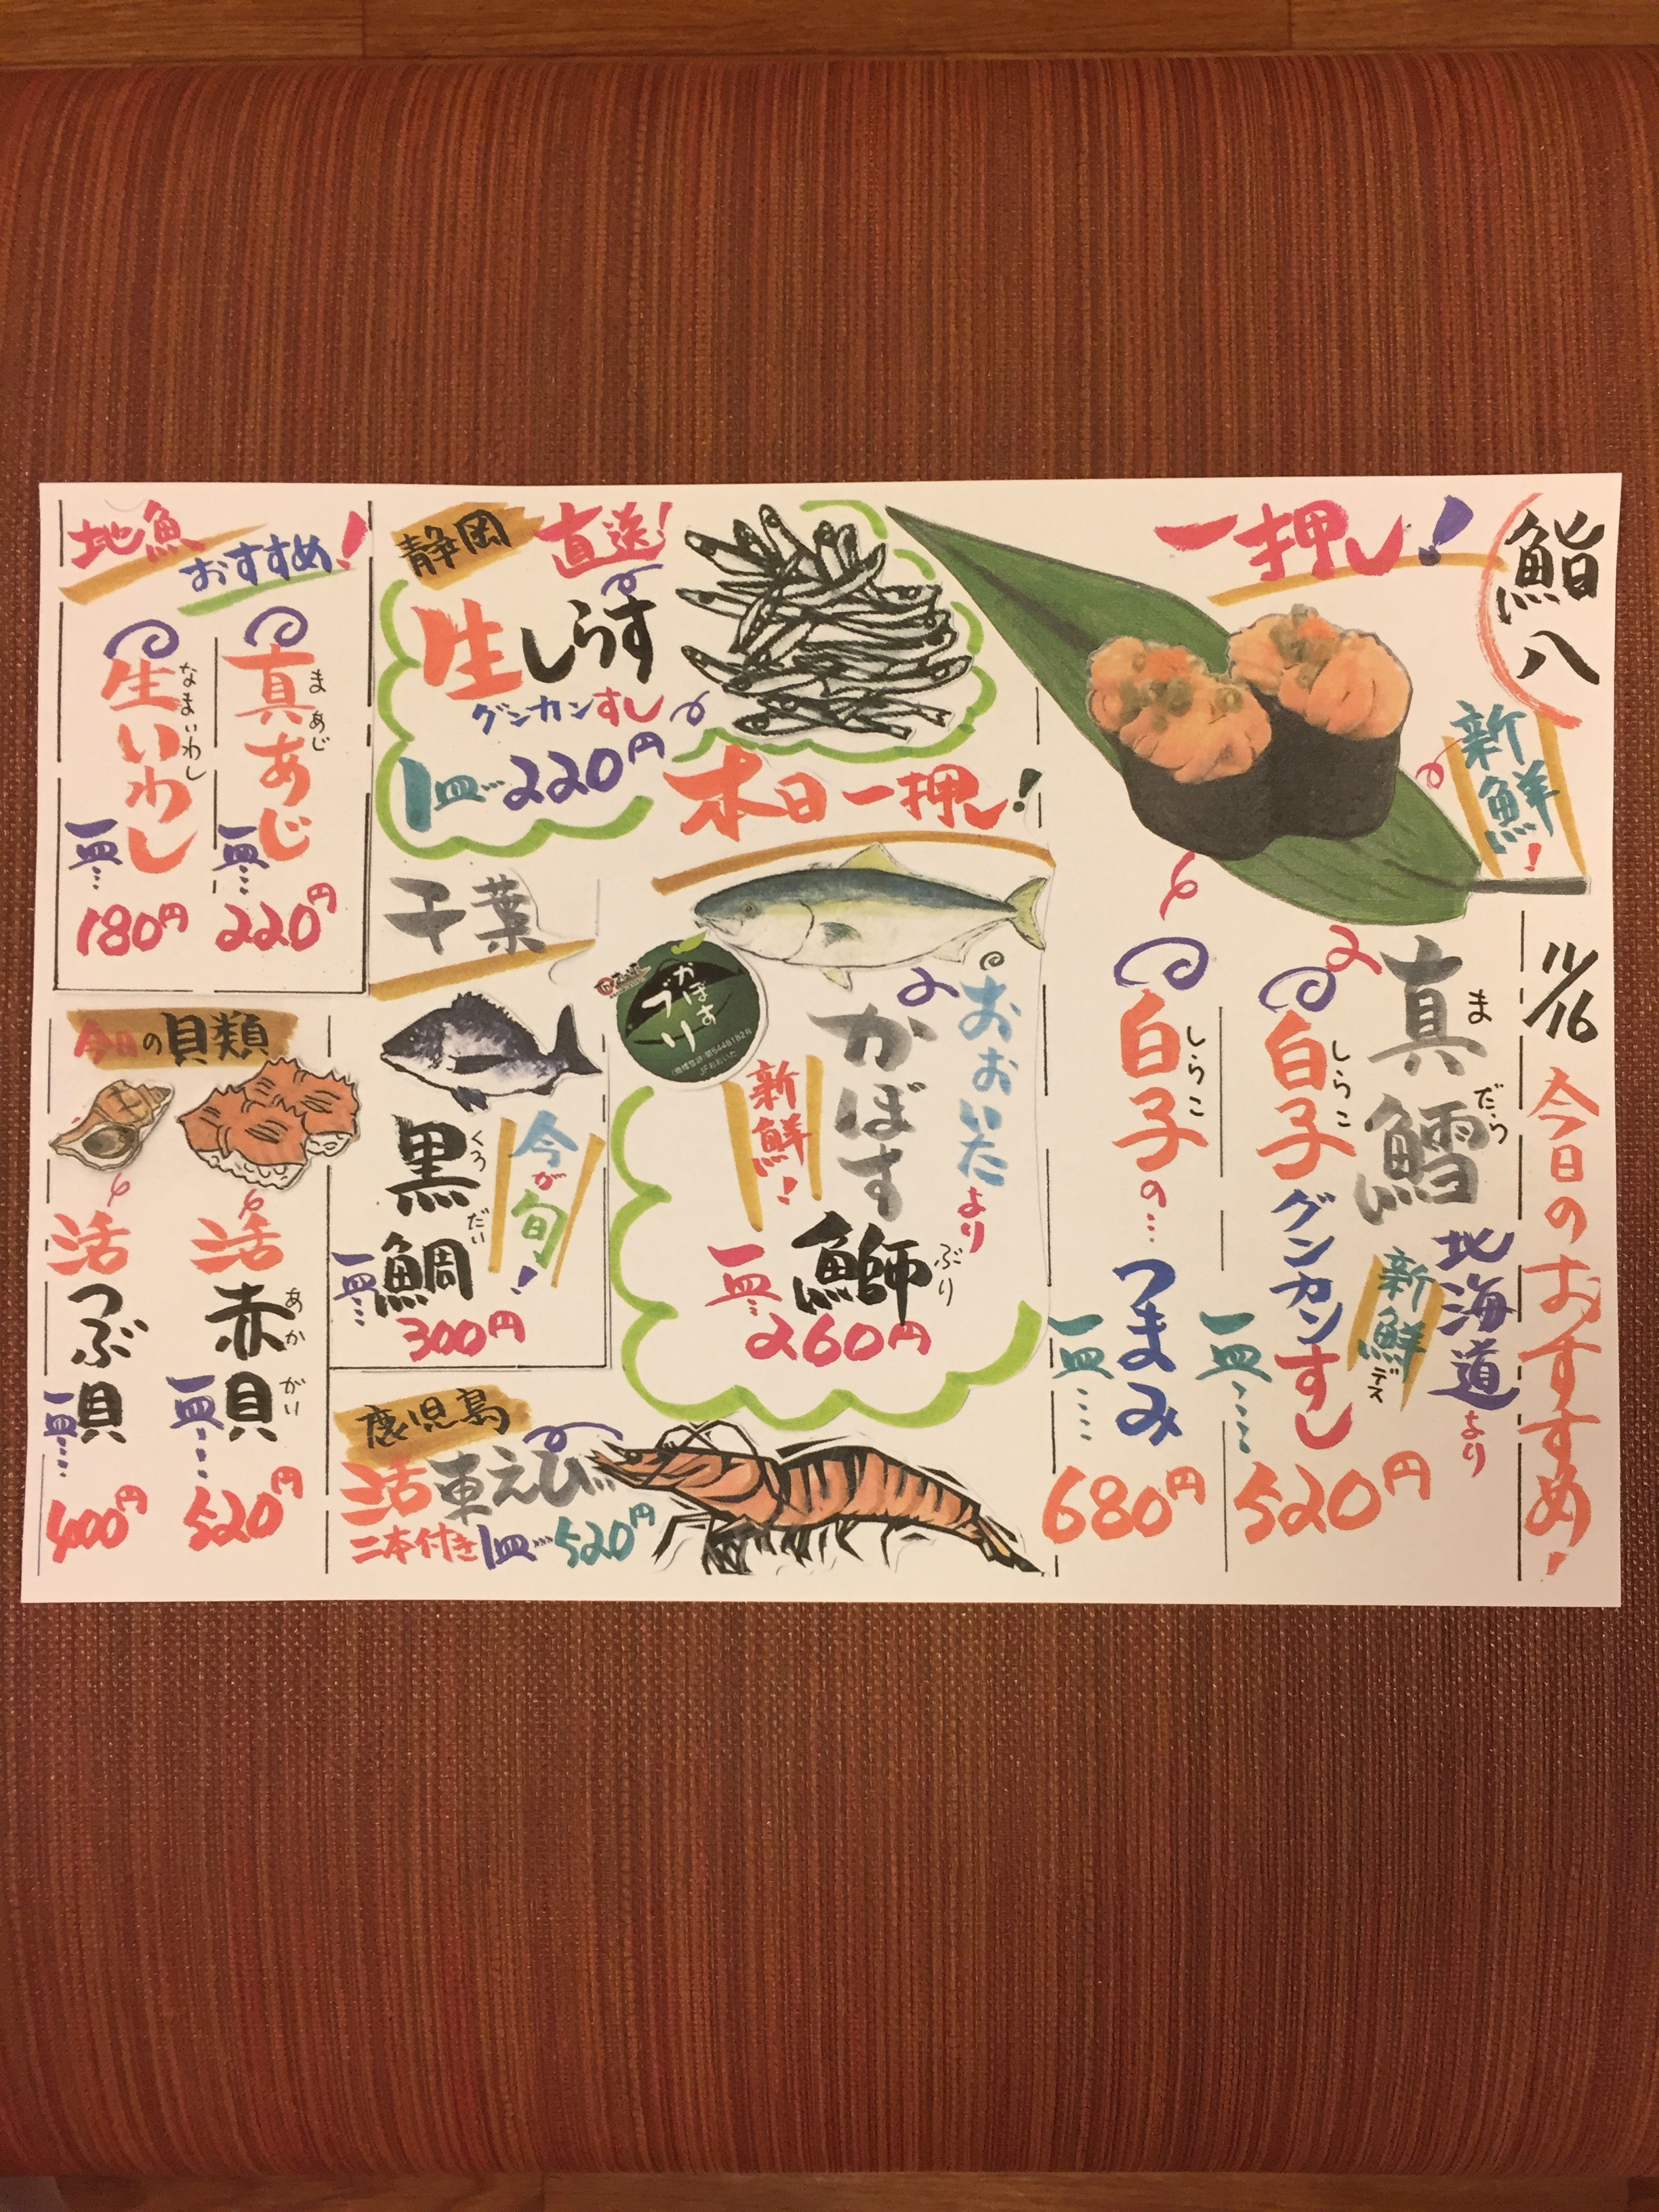 鮨八
11/16 今日のおすすめ!
一押し!
新鮮!
真鱈
まだら
北海道より
新鮮デス
白子グンカンすし
しらこ
一皿…
520円
白子の…つまみ
しらこ
一皿…
680円
静岡 直送!
生しらす
グンカンすし
1皿…220円
本日一押し!
おおいたより
かぼす鰤
ぶり
新鮮!
一皿…
260円
かぼすブリ
JFおおいた
千葉
黒鯛
くろだい
今が旬!
一皿…
300円
鹿児島
活車えび
二本付き1皿…520円
地魚おすすめ!
真あじ
まあじ
一皿…
220円
生いわし
なまいわし
一皿…
180円
今日の貝類
活赤貝
あかがい
一皿…
520円
活つぶ貝
一皿…
400円